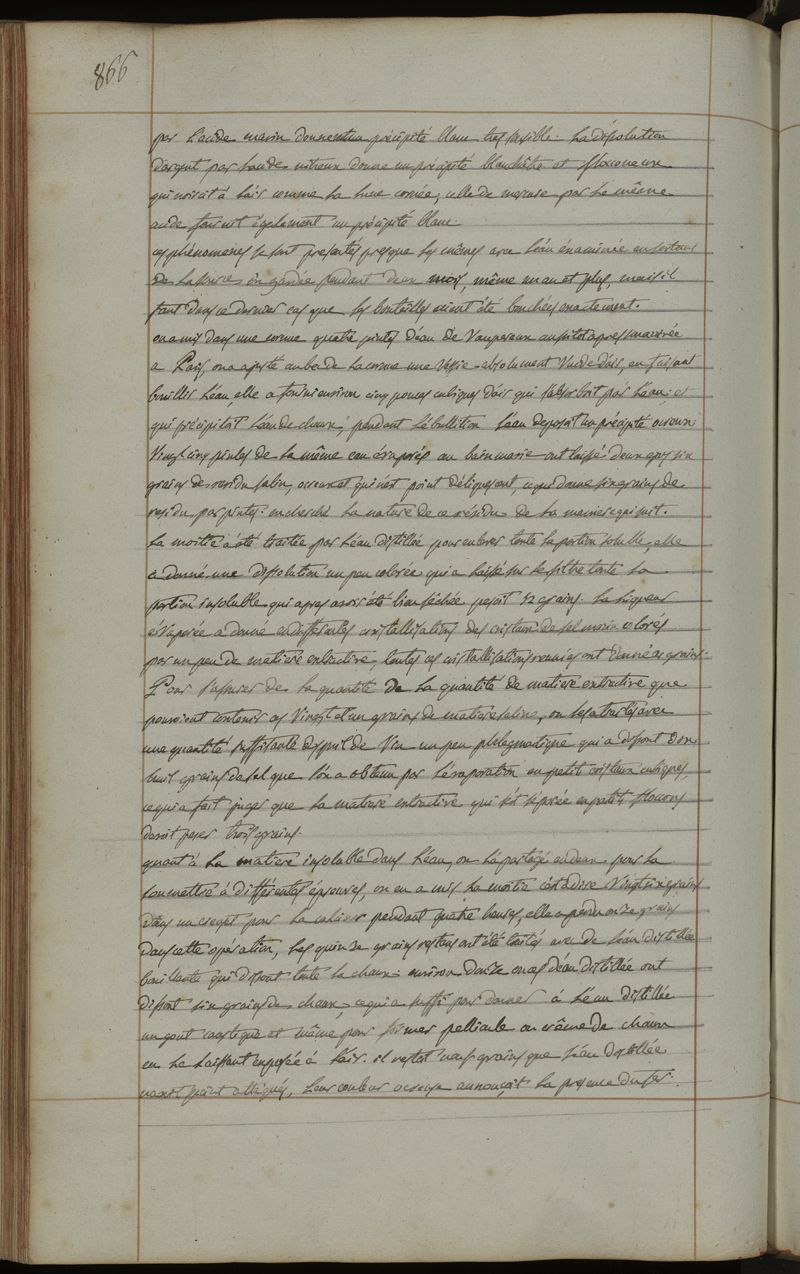 866
par l'acide marin donne un précipité blanc tres sensible. La dissolution
d'argent par l'acide nitreux donne un précipité blanchâtre et floconeux
qui noircit à l'air comme la lune cornée; celle de mercure par le même
acide fournit également un précipité blanc
ces phénomenes se sont presentés presque les mêmes avec l'eau examinée en sortant
de la source ou gardée pendant deux mois, même un an et plus, mais il
faut dans ce dernier cas que les bouteilles aient été bouchées exactement.
on a mis dans une cornue quatre pintes d'eau de aussitôt apres son arrivée
a Paris, on a ajusté au bec de la cornue une vessie absolument vuide d'air, en faisant
bouillir l'eau, elle a fourni environ cinq pouces cubiques d'air qui s'absorboit par l'eau et
qui précipitoit l'eau de chaux; pendant l'ébullition l'eau deposoit un précipité ocreux
Vingt cinq pintes de la même eau évaporés au bain marie ont laissé deux gros six
grains de residu salin, ocreux et qui n'est point déliquescent, ce qui donne six grains de
residu par pinte. recherché la nature de ce résidu de la maniere qui suit.
La moitié a été traitée par l'eau distillée pour enlever toute la portion soluble, elle
a donné une dissolution un peu colorée qui a laissé sur le filtre toute la
portion insoluble qui apres avoir été bien séchée pesoit 52 grains. La liqueur
évaporée a donné en differentes cristallisations des cristaux de sel marin colorés
par un peu de matiere extractive, toutes ces cristallisations reunies ont donné grains.
Pour s'assurer de la quantité de la quantité de matiere extractive que
pouvoient contenir ces vingt et un grains de matiere saline, on les a traités avec
une quantité suffisante d'esprit de vin un peu phlegmatique qui a dissout dix
huit grains de sel que l'on a obtenu par l'évaporation en petits cristaux cubiques,
ce qui a fait juger que la matiere extractive qui s'est séparée en petits flocons
devoit peser trois grains.
quant à la matiere insoluble dans l'eau, on l'a partagé en deux pour la
soumettre à différentes épreuves, on en a mis la moitié c'est à dire vingt six grains
dans un creuset pour la calciner pendant quatre heures, elle a perdu onze grains
dans cette opération, les quinze grains restens ont été traités avec de l'eau distillée
bouillante qui dissout toute la chaux. environ douze onces d'eau distillée ont
dissout six grains de chaux, ce qui a suffi pour donner à l'eau distillée
un gout caustique et même pour former pellicule ou crême de chaux
en la laissant exposée à l'air. il restoit neuf grains que l'eau distillée
n'avoit point attaqués, leur couleur ocreuse annonçoit la presence du fer.